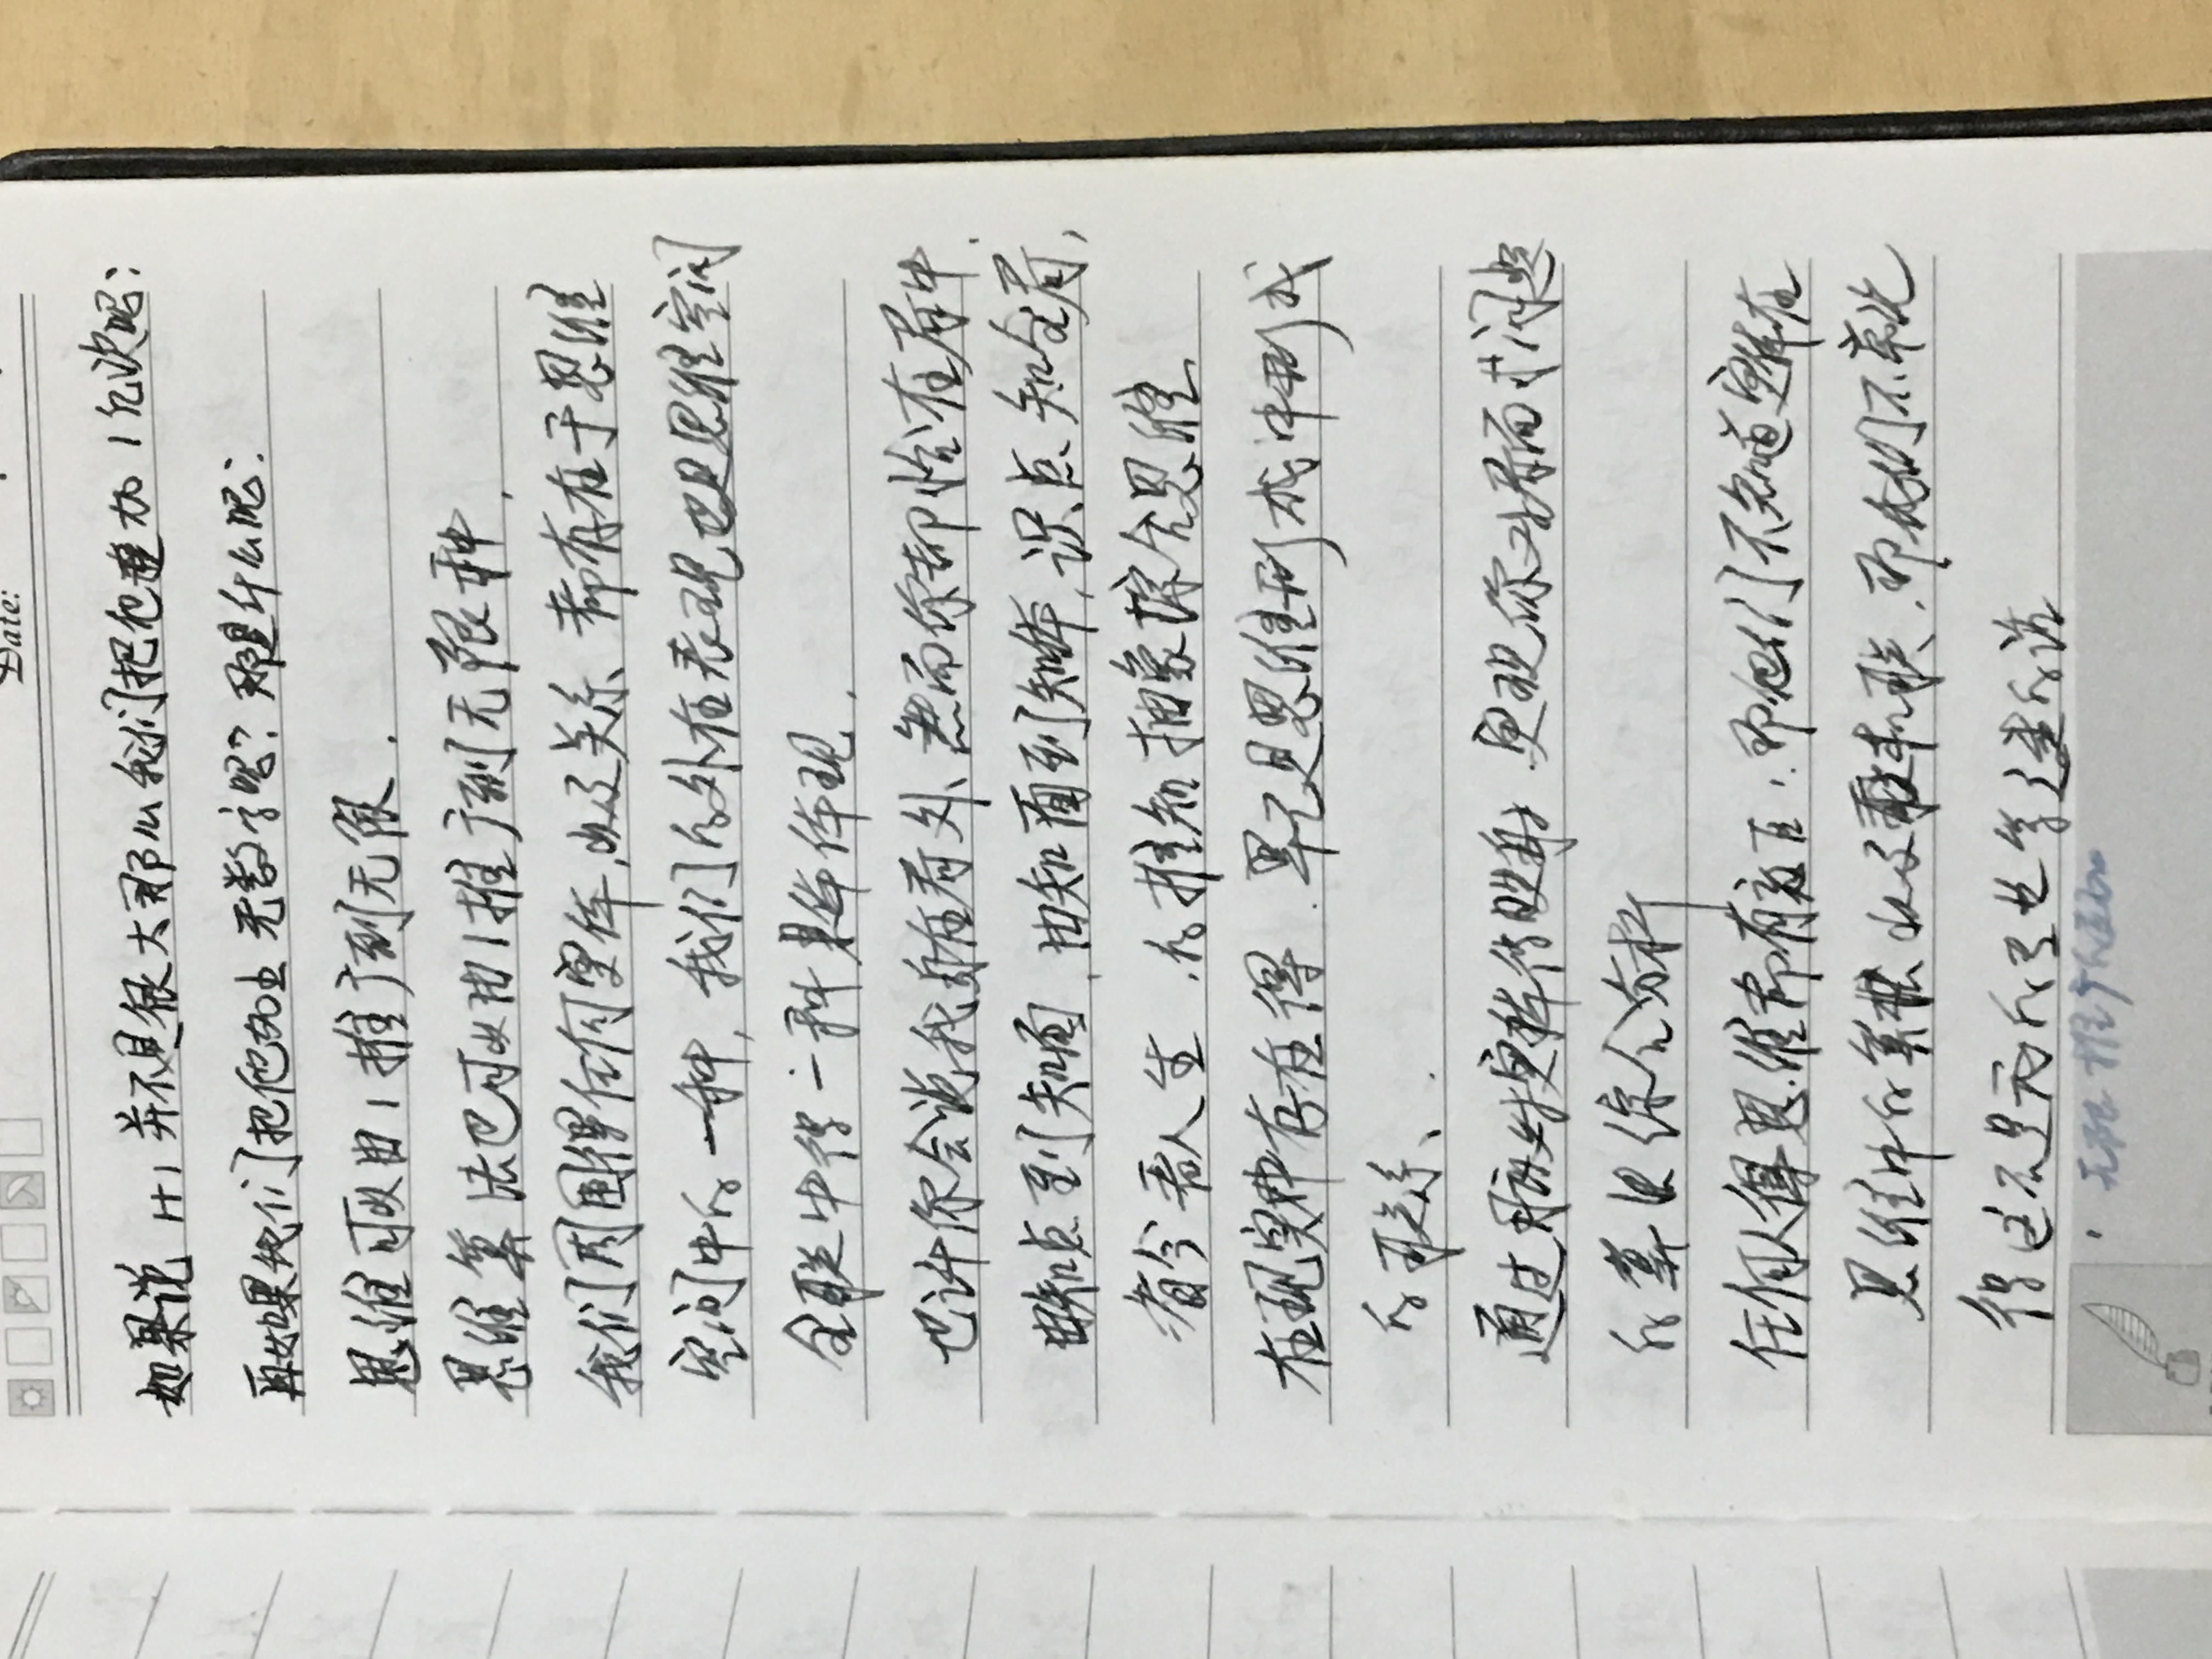 Date:
如果说 1+1 并不是很大那么我们把他叠加 1亿次呢?
再如果我们把他加上无数字呢? 那是什么呢?
思维可以由1推广到无限.
思维算法也可以由1推广到无限种,
我们周围得任何实体,以及关系、都存在于思维
空间中的一种, 我们的外在表现也是思维空间
全联中得一种具体体现.
也许你会说我身在局外、然而你却恰在局中.
由知点到知面, 由知面到知体, 识点知全局,
看今看人生 .的推知抽象综合思维
在现实中存在得 . 早已是思维形成中形成
的联系、.
通过 对实体得映射 . 实现你对局面、问题
的算思综合分析
任何人得思维都有 . 即他们不知道实体在
思维中的算 以及 联 . 即我们不常说
得这不是我的专业等之类的话
无限推广